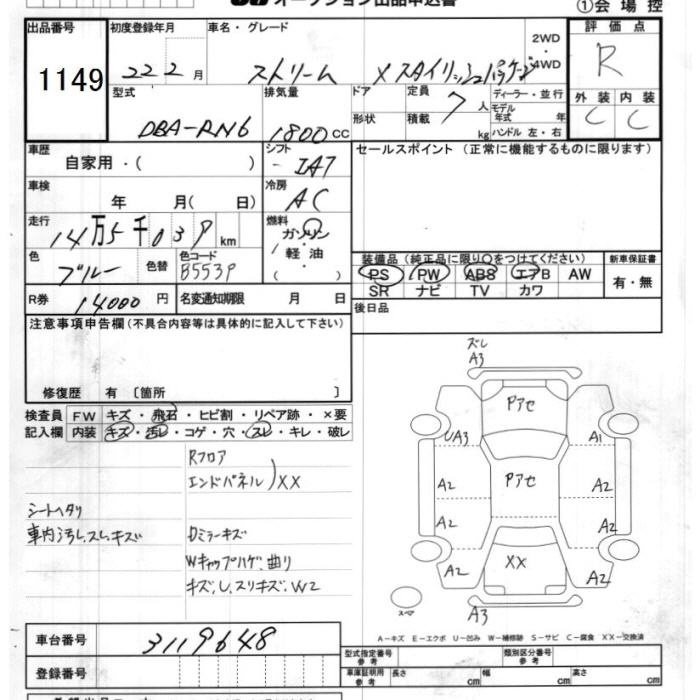 オークション出品申込書
①会場控
出品番号
1149
初度登録年月
22 2月
車名・グレード
ストリーム X スタイリッシュパッケージ
2WD
4WD
評価点
R
型式
DBA-RN6
排気量
1800CC
ドア
形状
定員
7人
積載
kg
ディーラー・並行
モデル
年式 年
ハンドル 左・右
外装
C
内装
C
車歴
自家用・( )
シフト
IAT
セールスポイント (正常に機能するものに限ります)
車検
年 月( 日)
冷房
AC
走行
14万5千039km
燃料
ガソリン
軽油
( )
色
ブルー
色替
色コード
B553P
装備品 (純正品に限り○をつけてください)
PS PW ABS エアB AW
SR ナビ TV カワ
新車保証書
有・無
R券
14000円
名変通知期限 月 日
後日品
注意事項申告欄 (不具合内容等は具体的に記入して下さい)
修復歴 有 〔箇所 〕
検査員
記入欄
FW キズ・飛石・ヒビ割・リペア跡・×要
内装 キズ・汚レ・コゲ・穴・スレ・キレ・破レ
Rフロア
エンドパネル)XX
シートヘタリ
車内汚レ、スレ、キズ
Dミラーキズ
Wキャップハゲ、曲リ
キズ、し、スリキズ、W2
ズレ
A3
Pアセ
UA3
A1
A2
Pアセ
A2
A2
A2
XX
A2
A2
スペア
A3
A-キズ E-エクボ U-凹み W-補修跡 S-サビ C-腐食 XX-交換済
車台番号
3119648
登録番号
型式指定番号
参考
類別区分番号
参考
車庫証明用
参考
長さ cm
幅 cm
高さ cm